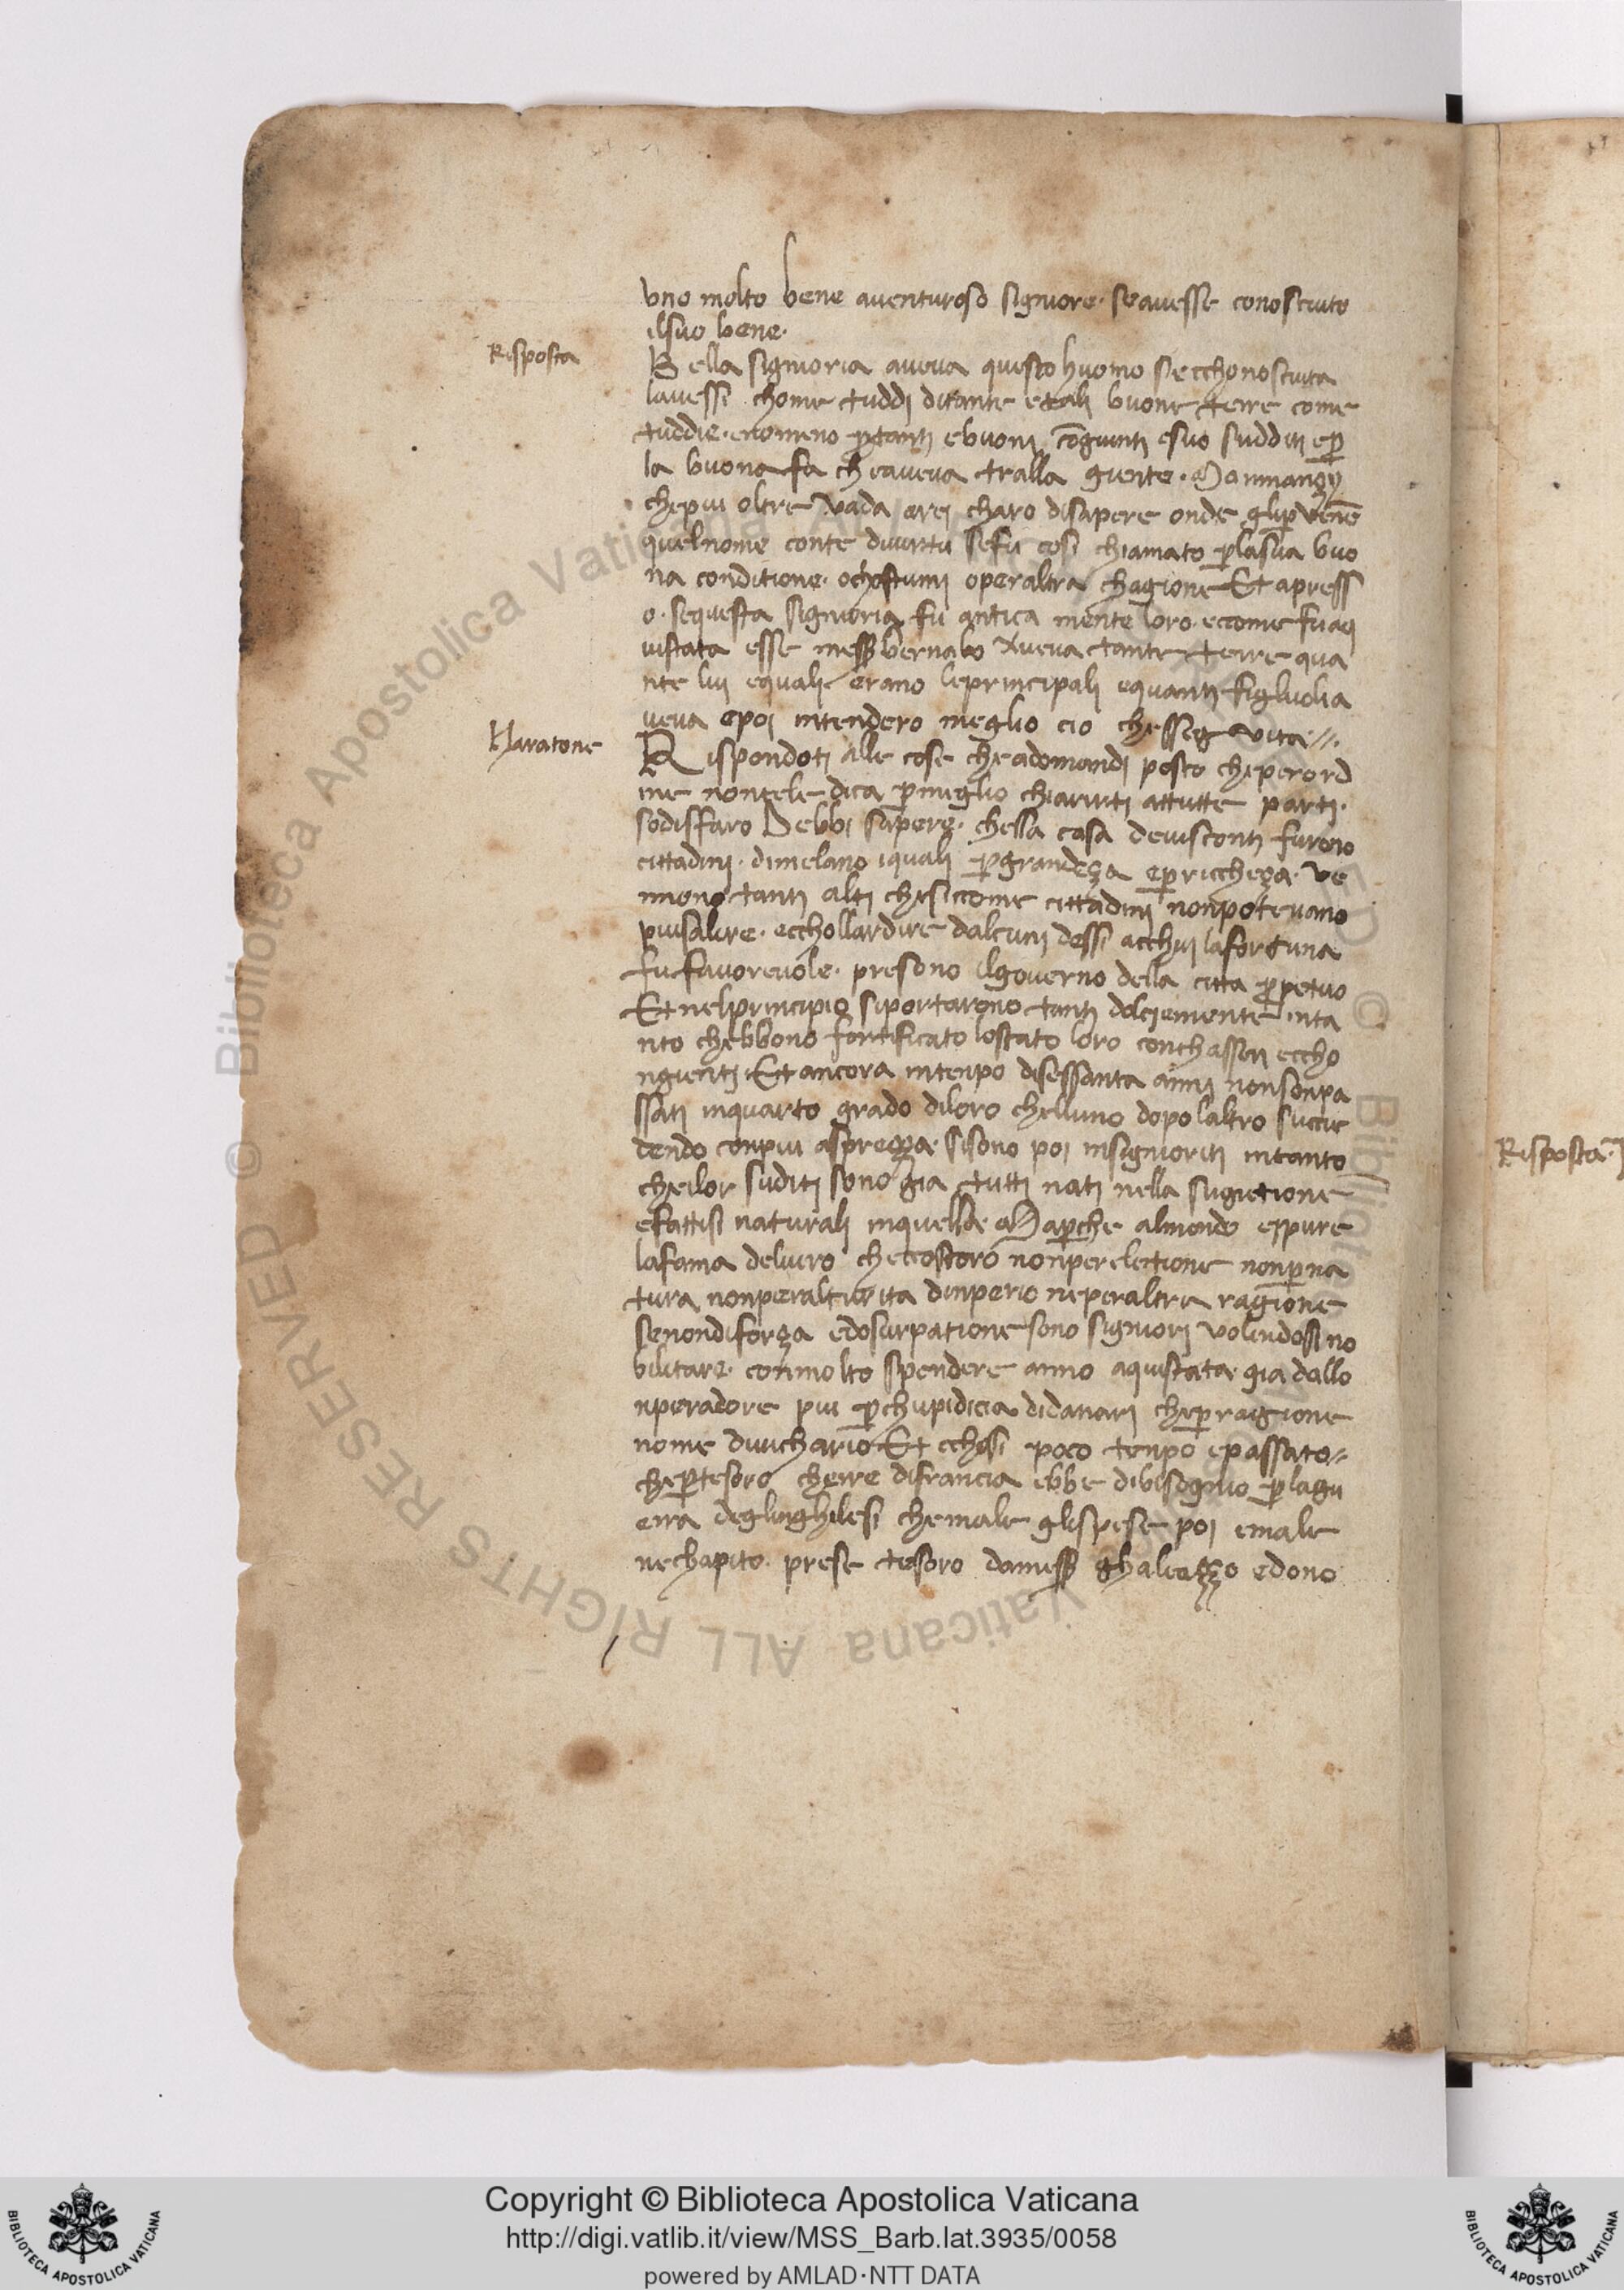 vno molto bene auenturoso signore · seauesse conosciuto
ilsuo bene ·
Risposta
Bella signioria aueua questo huomo se cchonosciuta
lauessi chome tuddi ditante etali buone terre come
tuddie · enomeno ptanti ebuoni cõgiunti esuo sudditi ep
la buona fa cheaueua tralla giente · Mannanzi
chepiu oltre vada arei charo disapere onde glip venẽ
quelnome conte diuirtu sefu cosi chiamato plasua buo
na conditione · ochostumi operaltra chagione Et apress
o · sequesta signioria fu antica mente loro · eccome fuaq
uistata esse mess bernabo Aueua tante terre qua
nte lui equali erano leprincipali equanti figliuolia
ueua epoi intendero meglio cio chesseg vita
Naratore
Rispondoti alle cose cheadomandi posto cheperord
ine nontele dica p meglio chiarirti attutte parti ·
sodisfaro Debbi sapere · chella casa deuisconti furono
cittadini · dimelano iquali pgrandeza epriccheza · ve
nnono tanti alti chesiccome cittadini nonpoteuano
piusalire · ecchollardire dalcuni dessi acchui lafortuna
fu fauoreuole · presono ilgouerno della citta ppetuo
Et nelprincipio siportarono tanti dolciemente · inta
nto chebbono fortificato lostato loro conchasseri eccho
ngienti · Et ancora intenpo disessanta anni nonsonpa
ssati inquarto grado diloro chelluno dopo laltro succie
dendo conpiu asprezza · sisono poi insignioriti intanto
cheilor suditi sono gia tutti nati nella sugietione
efattisi naturali inquella · Mapche almondo eppure
lafama deluero checcostoro nonperelectione nonpna
tura nonperalturita dinperio neperaltra ragione
senondiforza edosurpatione sono signiori volendosi no
bilitare · conmolto spendere anno aquistata · gia dallo
nperadore piu pchupidicia didanari chepragione
nome diuichario Et cchosi poco tenpo epassato
cheptesoro cherre difrancia ebbe dibisognio plagu
erra deglinghilesi chemale glispese poi emale
nechapito · prese tesoro damess ghaleazzo edono
Risposta ·
© Biblioteca Apostolica Vaticana ALL RIGHTS RESERVED
Copyright © Biblioteca Apostolica Vaticana
http://digi.vatlib.it/view/MSS_Barb.lat.3935/0058
powered by AMLAD·NTT DATA
BIBLIOTECA APOSTOLICA VATICANA
BIBLIOTECA APOSTOLICA VATICANA